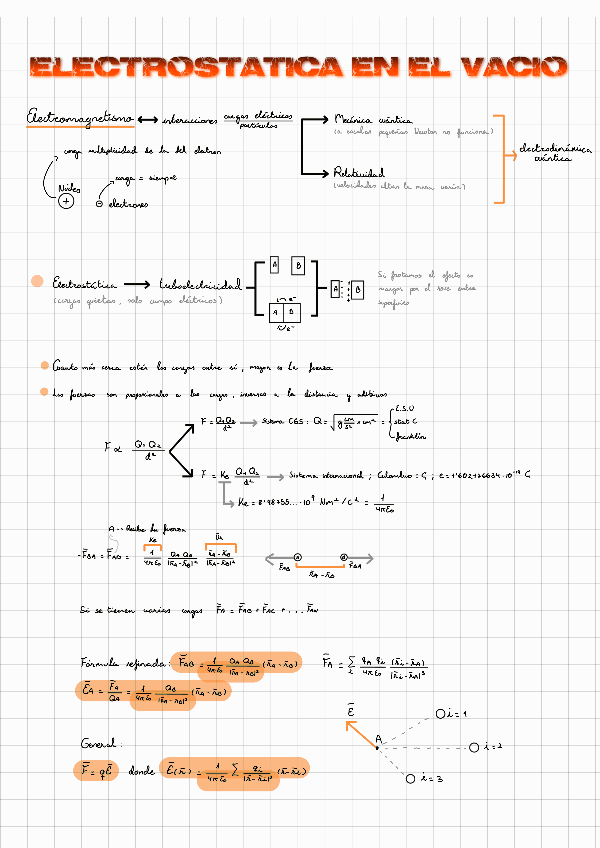 ELECTROSTATICA EN EL VACIO
Electromagnetismo ↔ interacciones cargas eléctricas / partículas
Mecánica cuántica
(a escalas pequeñas Newton no funciona)
Relatividad
(velocidades altas la masa varía)
electrodinámica cuántica
carga multiplicidad de la del electron
Núcleo
+
carga = siempre
⊖ electrones
Electrostática → triboelectricidad
(cargas quietas, solo campo eléctricos)
A B
A B
A B
Si frotamos el efecto es
mayor por el roce entre
superficies
Cuanto más cerca estén las cargas entre sí, mayor es la fuerza
Las fuerzas son proporcionales a las cargas, inversas a la distancia y aditivas
F ∝ Q₁ Q₂ / d²
F = Q₁ Q₂ / d² → Sistema CGS: Q = √(g cm/s² × cm²) = { E.S.U
stat C
franklin
F = Ke Q₁ Q₂ / d² → Sistema internacional; Culombio: C; e = 1'602176634·10⁻¹⁹ C
Ke = 8'98755...·10⁹ Nm²/C² = 1/4πε₀
A → Recibe la fuerza
-F̄BA = F̄AB = 1/4πε₀ QA QB/|r̄A - r̄B|² r̄A - r̄B/|r̄A - r̄B|
F̄AB A B F̄BA
r̄A - r̄B
Si se tienen varias cargas F̄A = F̄AB + F̄AC + ... F̄AN
Fórmula refinada: F̄AB = 1/4πε₀ QA QB/|r̄A - r̄B|³ (r̄A - r̄B)
F̄A = Σ qA qi/4πε₀ (r̄i - r̄A)/|r̄i - r̄A|³
ĒA = F̄A/QA = 1/4πε₀ QB/|r̄A - r̄B|³ (r̄A - r̄B)
Ē
A
i = 1
i = 2
i = 3
General:
F̄ = qĒ donde Ē(r̄) = 1/4πε₀ Σ qi/|r̄ - r̄i|³ (r̄ - r̄i)